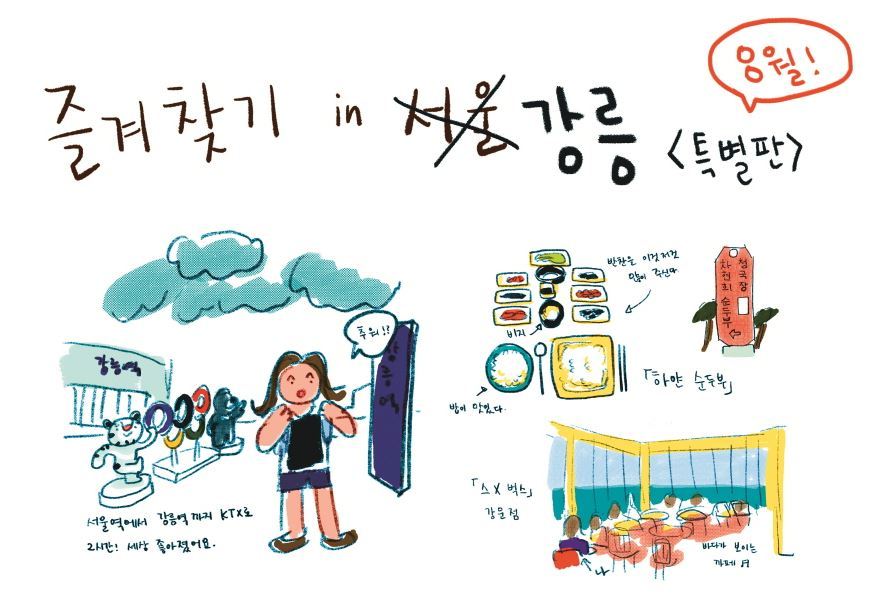 즐겨찾기 in 서울 강릉 <특별판>
응월!
강릉역
추워!?
강릉역
서울역에서 강릉역까지 KTX로
2시간! 세상 좋아졌어요.
반찬을 이것저것
많이 주신다
비지
밥이 맛있다.
「하얀 순두부」
청국장
차현희 순두부
「스X벅스」
강문점
나
바다가 보이는
카페